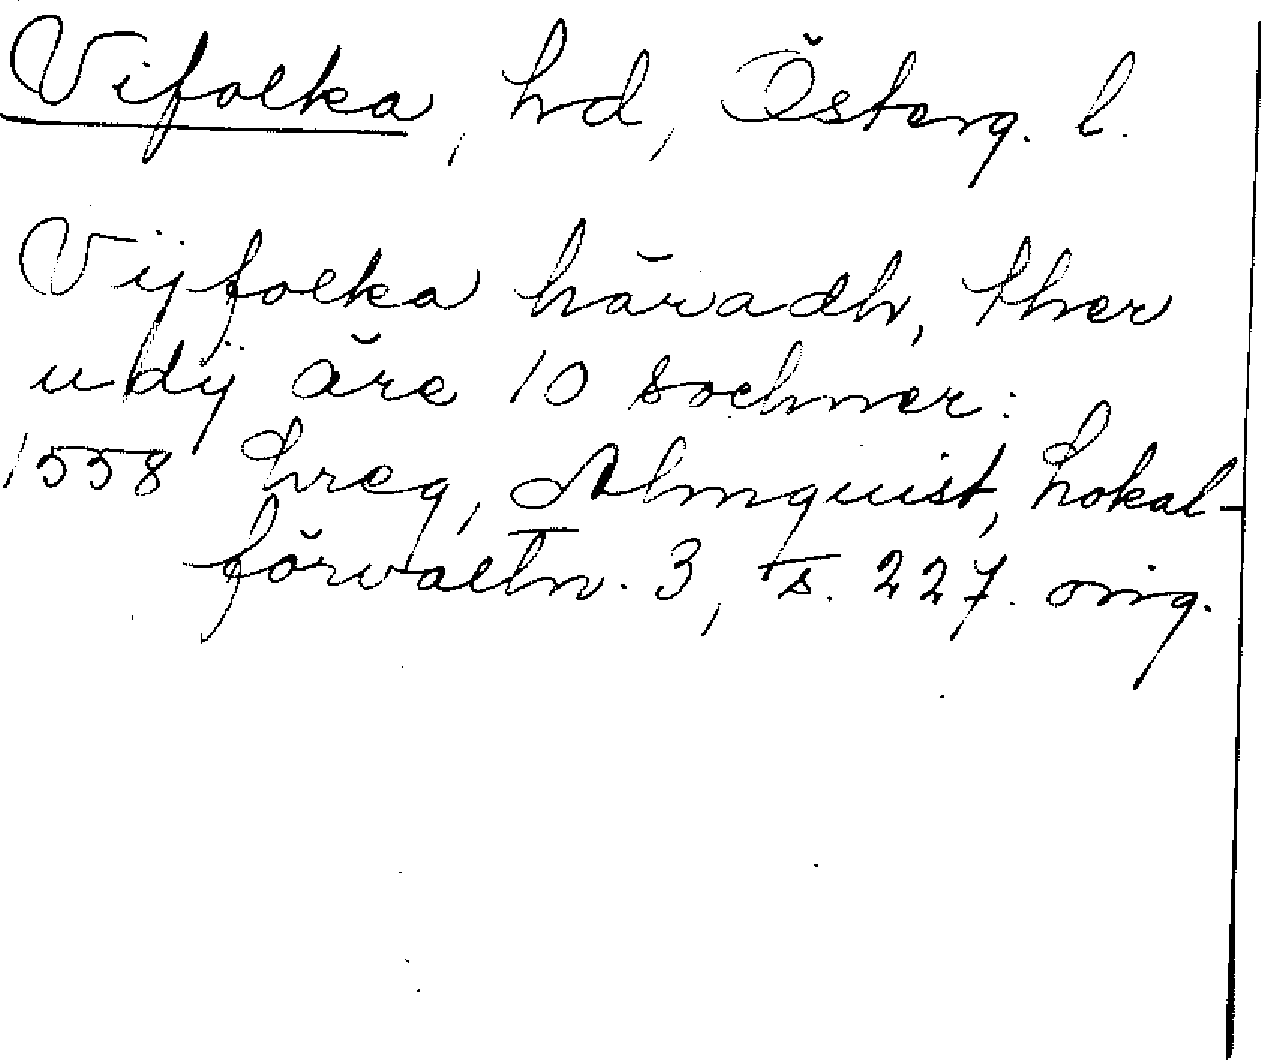 Vifolka, hd, Österg. l.
Vijfolka häradh, ther
udij äre 10 sochner:
1558 Lreg, Almquist, Lokal-
förvaltn. 3, s. 227. orig.